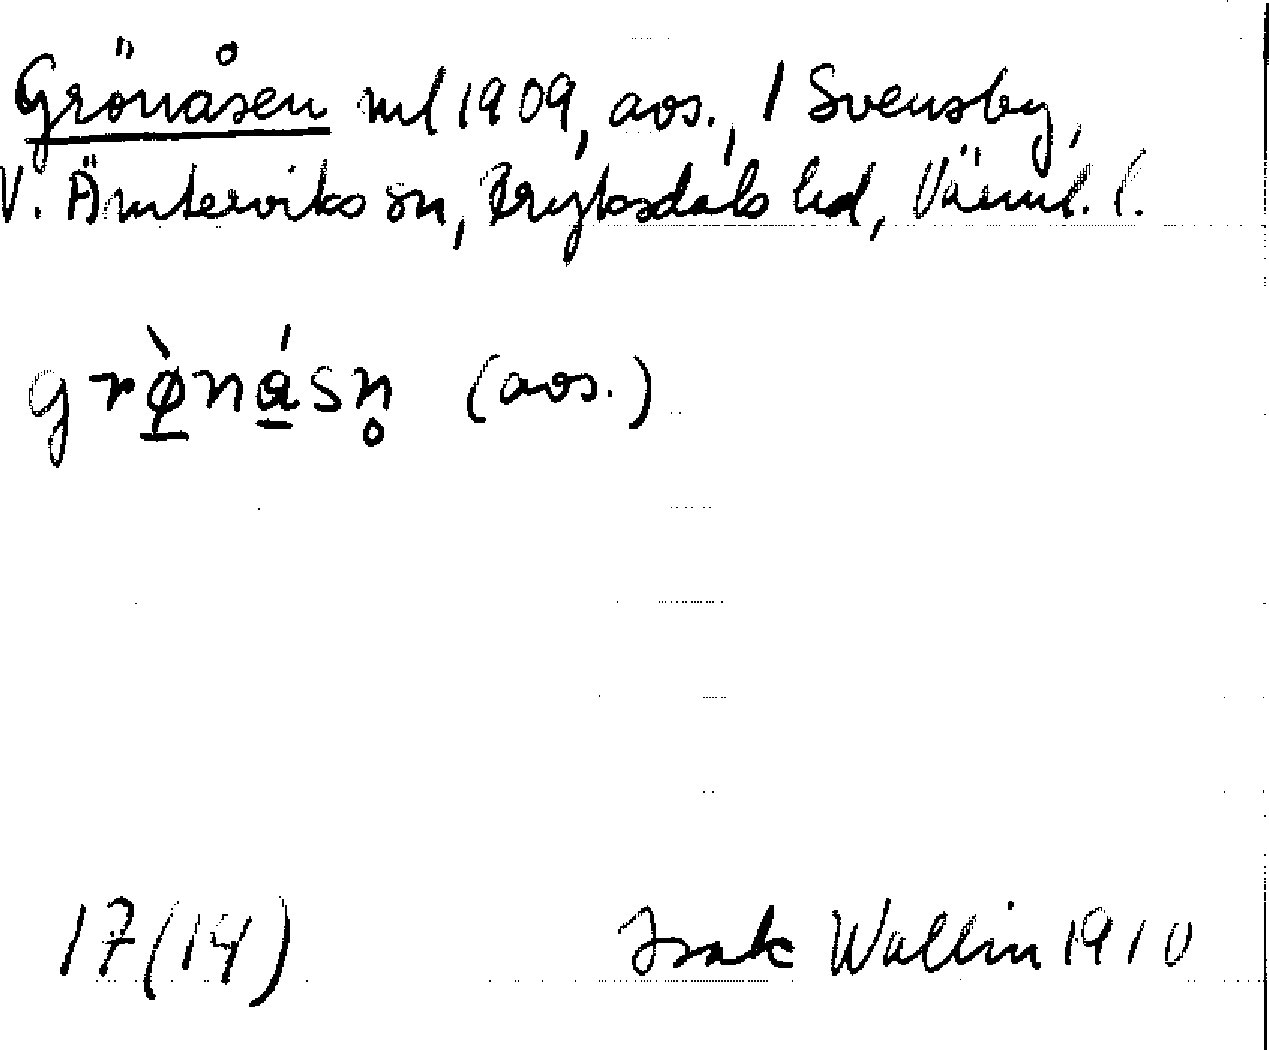 Grönåsen ml 1909, aos., / Svensby,
V. Ämterviks sn, Fryksdals hd, Värml. l.
grø̠̀ná̠sn̥ (aos.)
17(14) Isak Wallin 1910